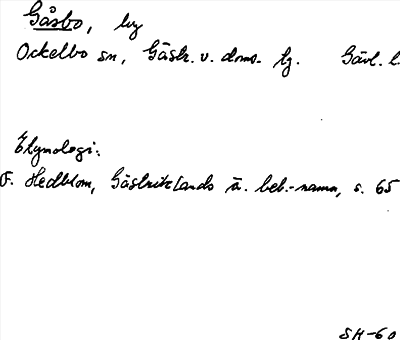 Gåsbo, by
Ockelbo sn, Gästr. v. doms. tg. Gävl. l.
Etymologi:
F. Hedblom, Gästriklands ä. beb.-namn, s. 65
SH-60